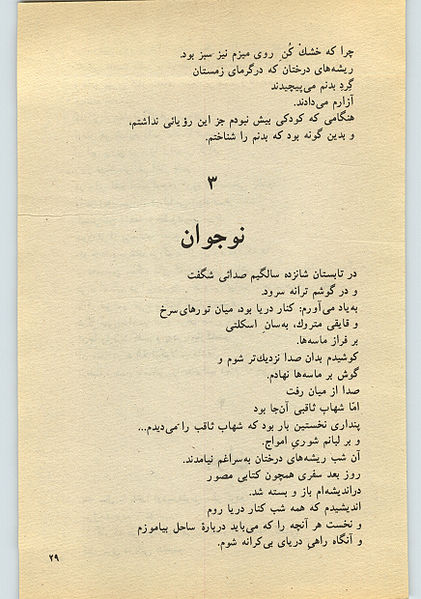 چرا که خشك‌کُن روی میزم نیز سبز بود.
ریشه‌های درختان که درگرمای زمستان
گِردِ بدنم می‌پیچیدند
آزارم می‌دادند.
هنگامی که کودکی بیش نبودم جز این رؤیائی نداشتم،
و بدین گونه بود که بدنم را شناختم.
۳
نوجوان
در تابستان شانزده سالگیم صدائی شگفت
و در گوشم ترانه سرود.
به‌یاد می‌آورم: کنار دریا بود، میان تورهای‌سرخ
و قایقی متروك، به‌سانِ اسکلتی
بر فراز ماسه‌ها.
کوشیدم بدان صدا نزدیك‌تر شوم و
گوش بر ماسه‌ها نهادم.
صدا از میان رفت
امّا شهابِ ثاقبی آن‌جا بود
پنداری نخستین بار بود که شهاب ثاقب را می‌دیدم...
و بر لبانم شوریِ امواج.
آن شب ریشه‌های درختان به‌سراغم نیامدند.
روز بعد سفری همچون کتابی مصور
دراندیشه‌ام باز و بسته شد.
اندیشیدم که همه شب کنار دریا روم
و نخست هر آنچه را که می‌باید دربارهٔ ساحل بیاموزم
و آنگاه راهیِ دریای بی‌کرانه شوم.
۲۹